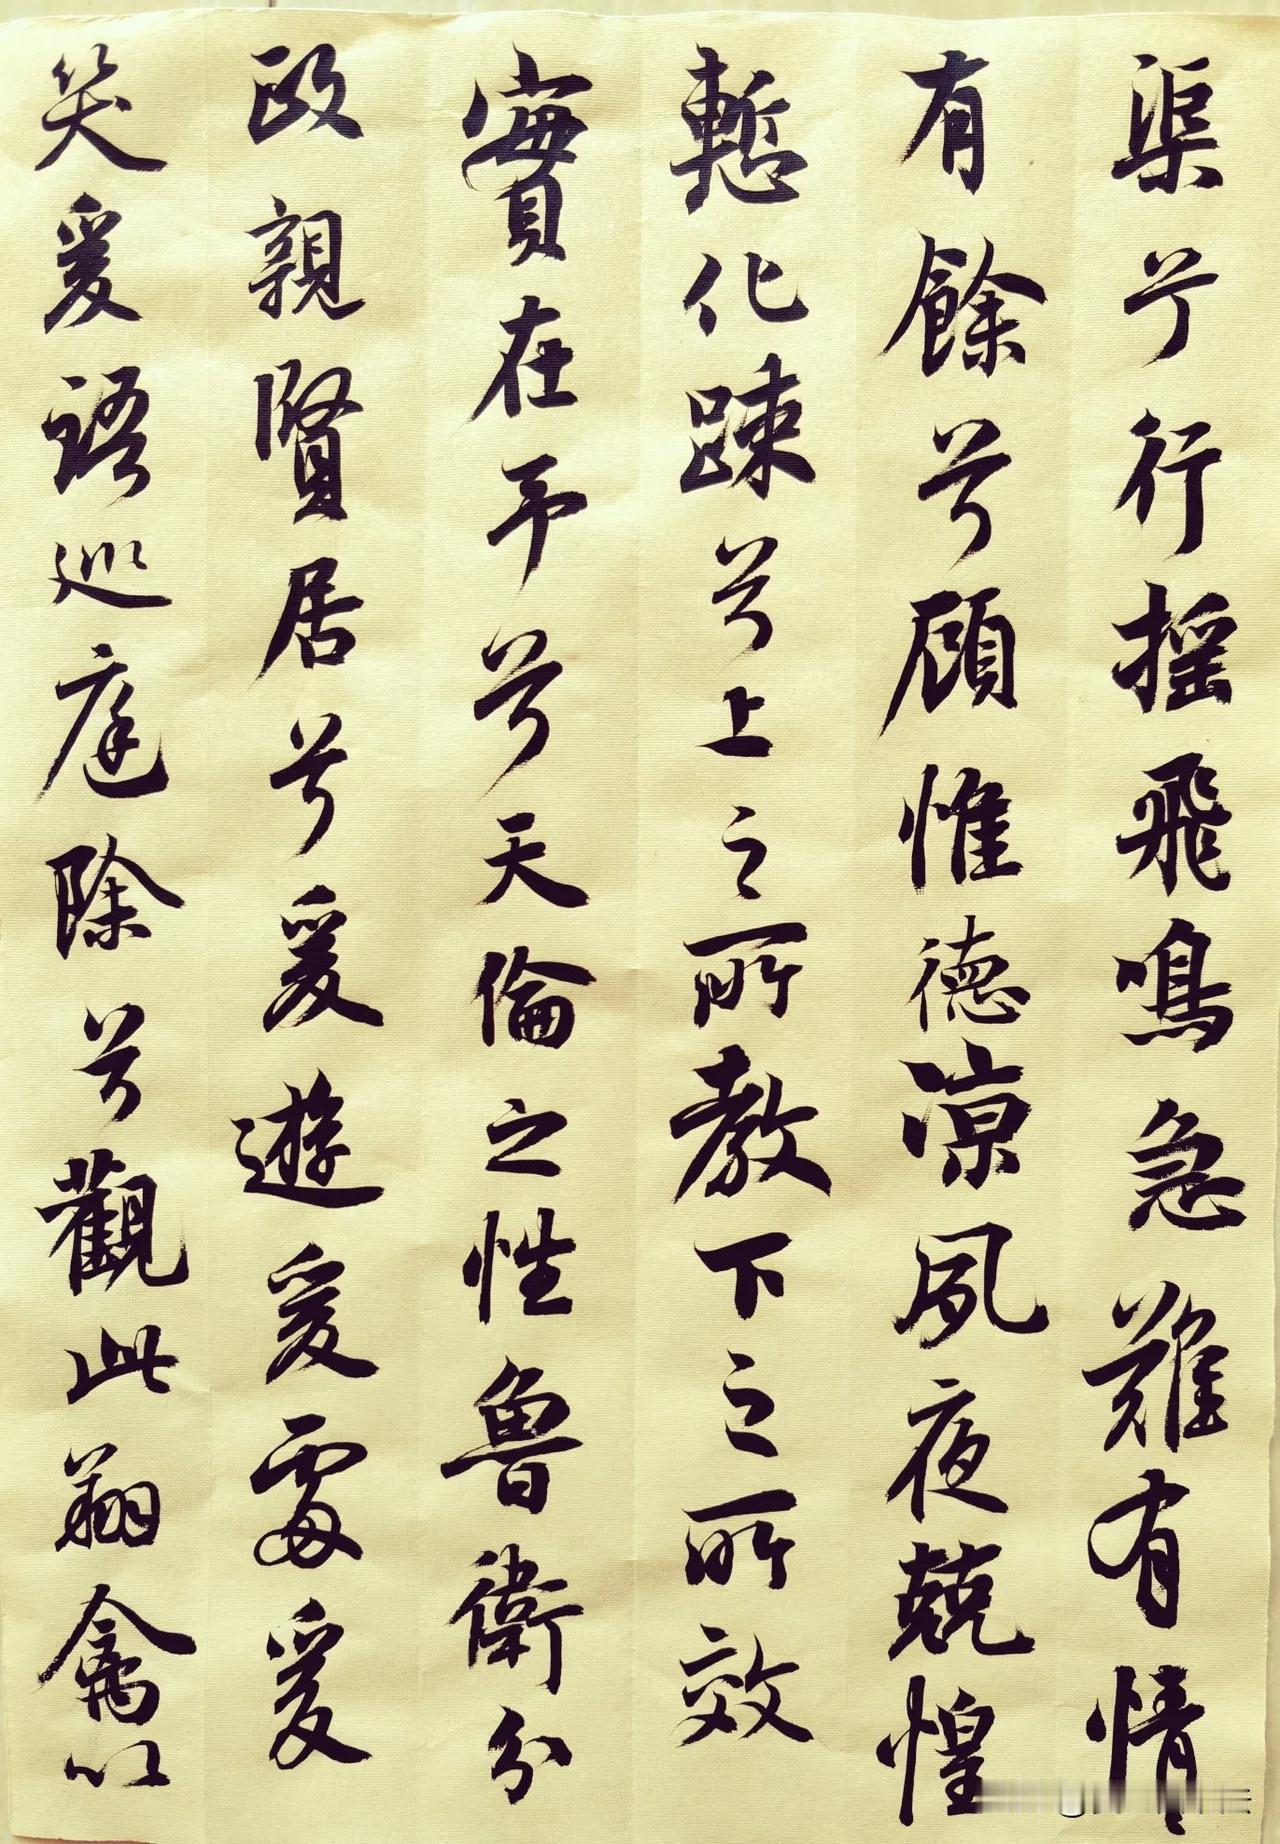 渠兮行摇飛鳴急難有情
有餘兮顧惟德凉夙夜兢惶
慙化踈兮上之所教下之所效
實在予兮天倫之性魯衛分
政親賢居兮爰遊爰處爰
笑爰語巡庭除兮觀此翔禽以